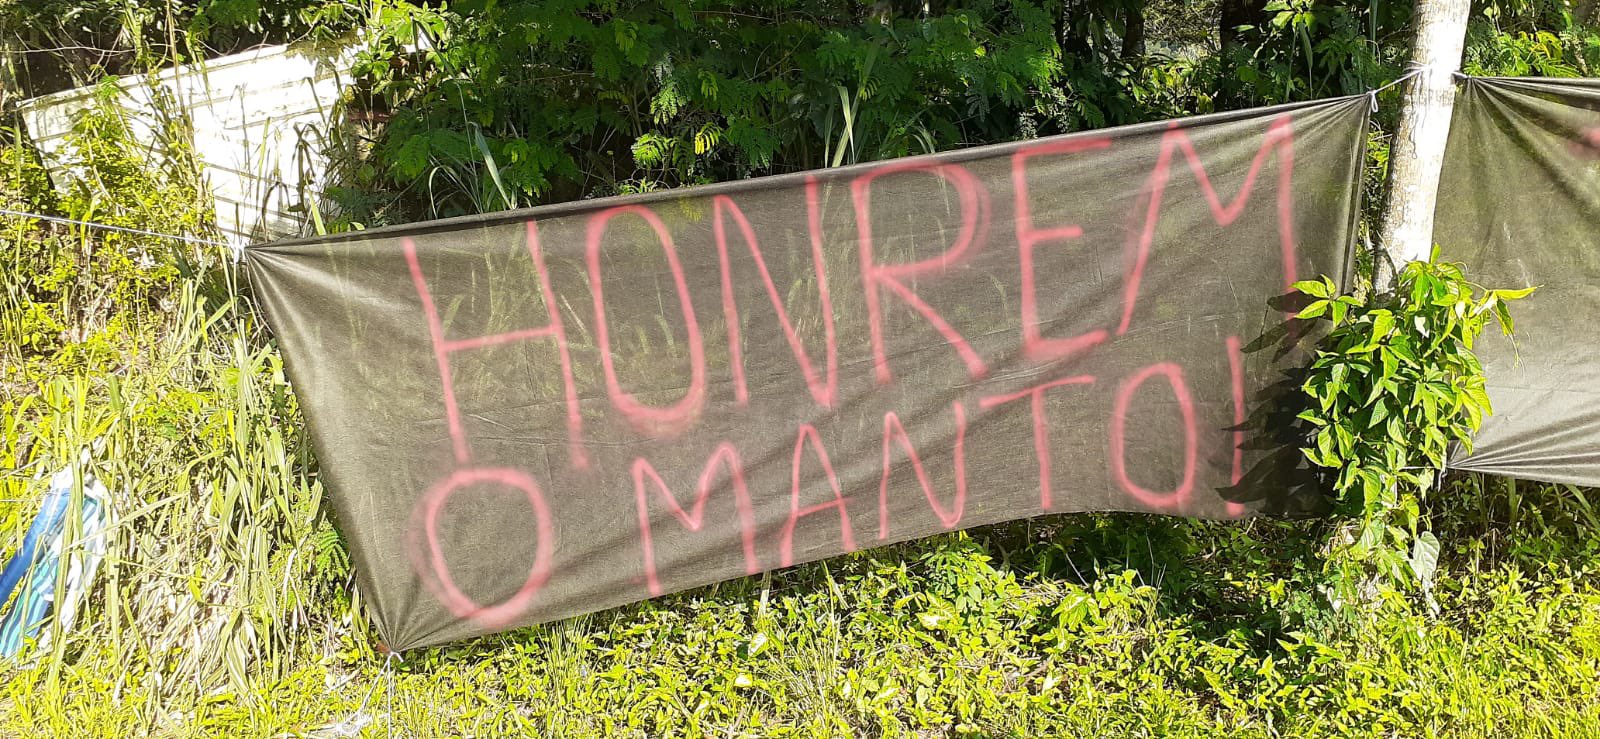 HONREM
O MANTO!